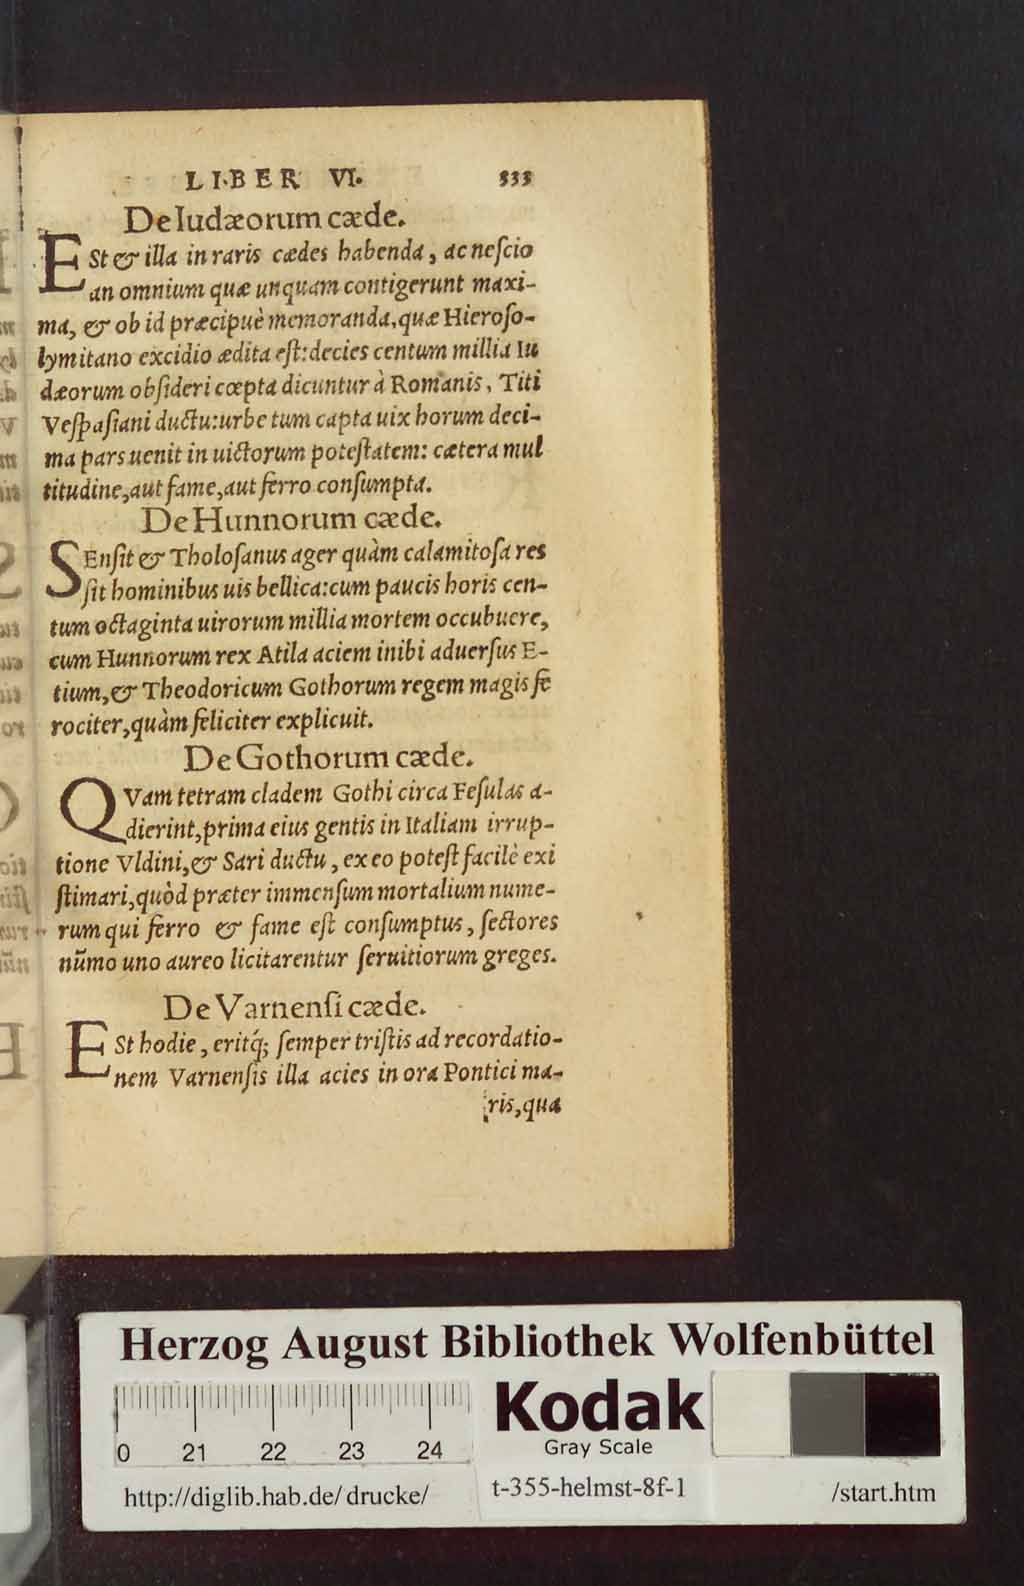 LIBER VI. 333
De Iudæorum cæde.
ESt & illa in raris cædes habenda, ac neſcio
an omnium quæ unquam contigerunt maxi-
ma, & ob id præcipuè memoranda, quæ Hieroſo-
lymitano excidio ædita eſt: decies centum millia Iu
dæorum obſideri cœpta dicuntur à Romanis, Titi
Veſpaſiani ductu: urbe tum capta uix horum deci-
ma pars uenit in uictorum poteſtatem: cætera mul
titudine, aut fame, aut ferro conſumpta.
De Hunnorum cæde.
SEnſit & Tholoſanus ager quàm calamitoſa res
ſit hominibus uis bellica: cum paucis horis cen-
tum octaginta uirorum millia mortem occubuere,
cum Hunnorum rex Atila aciem inibi aduerſus E-
tium, & Theodoricum Gothorum regem magis fe
rociter, quàm feliciter explicuit.
De Gothorum cæde.
QVam tetram cladem Gothi circa Feſulas a-
dierint, prima eius gentis in Italiam irrup-
tione Vldini, & Sari ductu, ex eo poteſt facilè exi
ſtimari, quòd præter immenſum mortalium nume-
rum qui ferro & fame eſt conſumptus, ſectores
nūmo uno aureo licitarentur ſeruitiorum greges.
De Varnenſi cæde.
ESt hodie, eritq́; ſemper triſtis ad recordatio-
nem Varnenſis illa acies in ora Pontici ma-
ris, qua
Herzog August Bibliothek Wolfenbüttel
0 21 22 23 24
Kodak
Gray Scale
http://diglib.hab.de/drucke/
t-355-helmst-8f-1
/start.htm